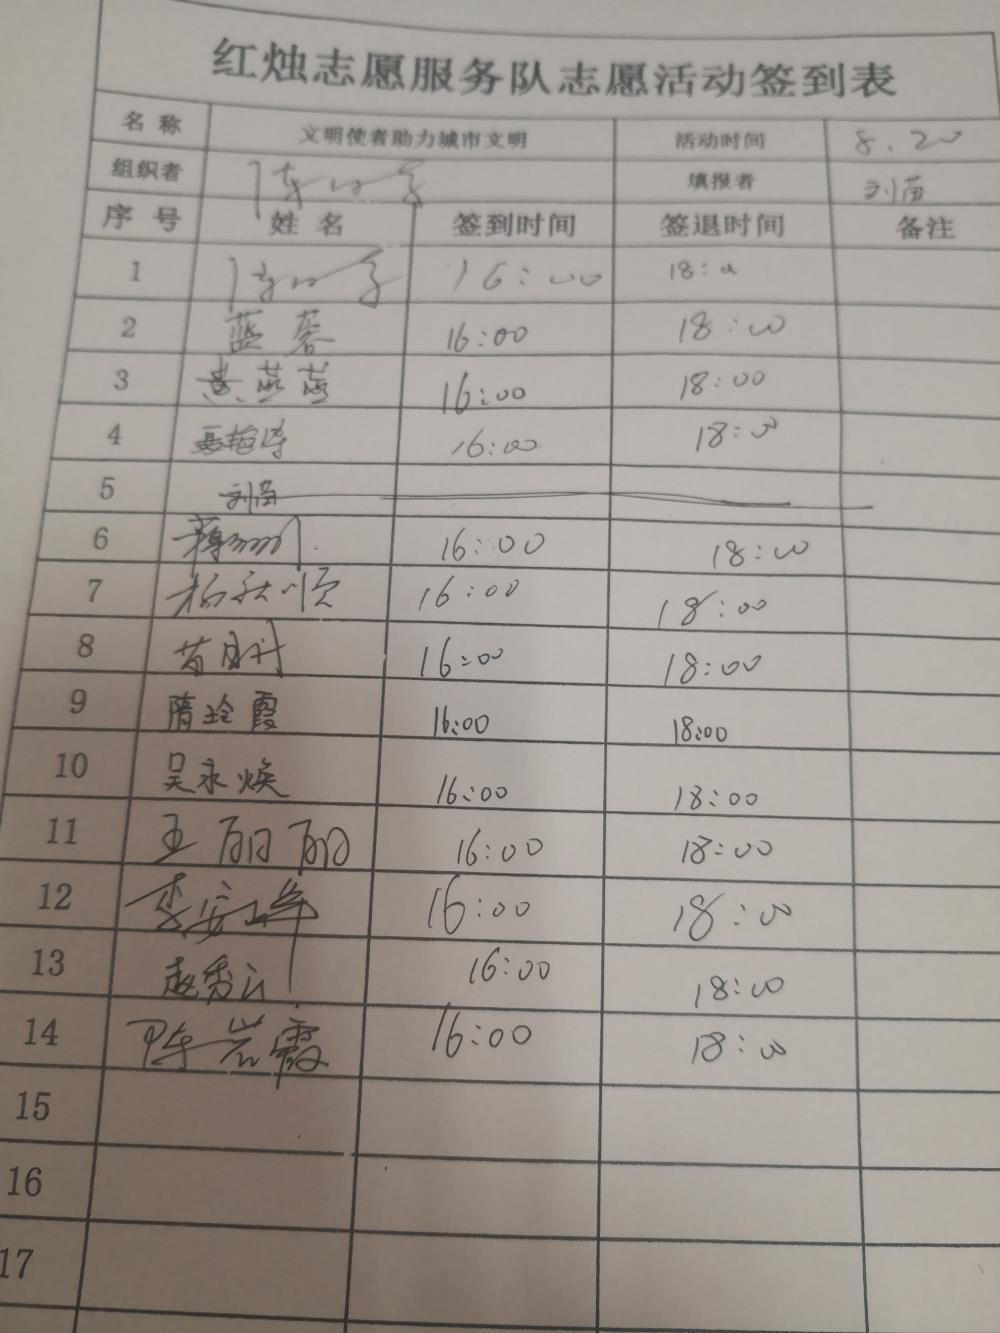 红烛志愿服务队志愿活动签到表
名 称 文明使者助力城市文明 活动时间 8.20
组织者 填报者 刘苗
序 号 姓 名 签到时间 签退时间 备注
1 16:00 18:00
2 蓝蓉 16:00 18:00
3 黄燕燕 16:00 18:00
4 16:00 18:00
5 刘苗
6 16:00 18:00
7 16:00 18:00
8 16:00 18:00
9 隋玲霞 16:00 18:00
10 吴永焕 16:00 18:00
11 王丽丽 16:00 18:00
12 16:00 18:00
13 赵秀云 16:00 18:00
14 陈岩霞 16:00 18:00
15
16
17